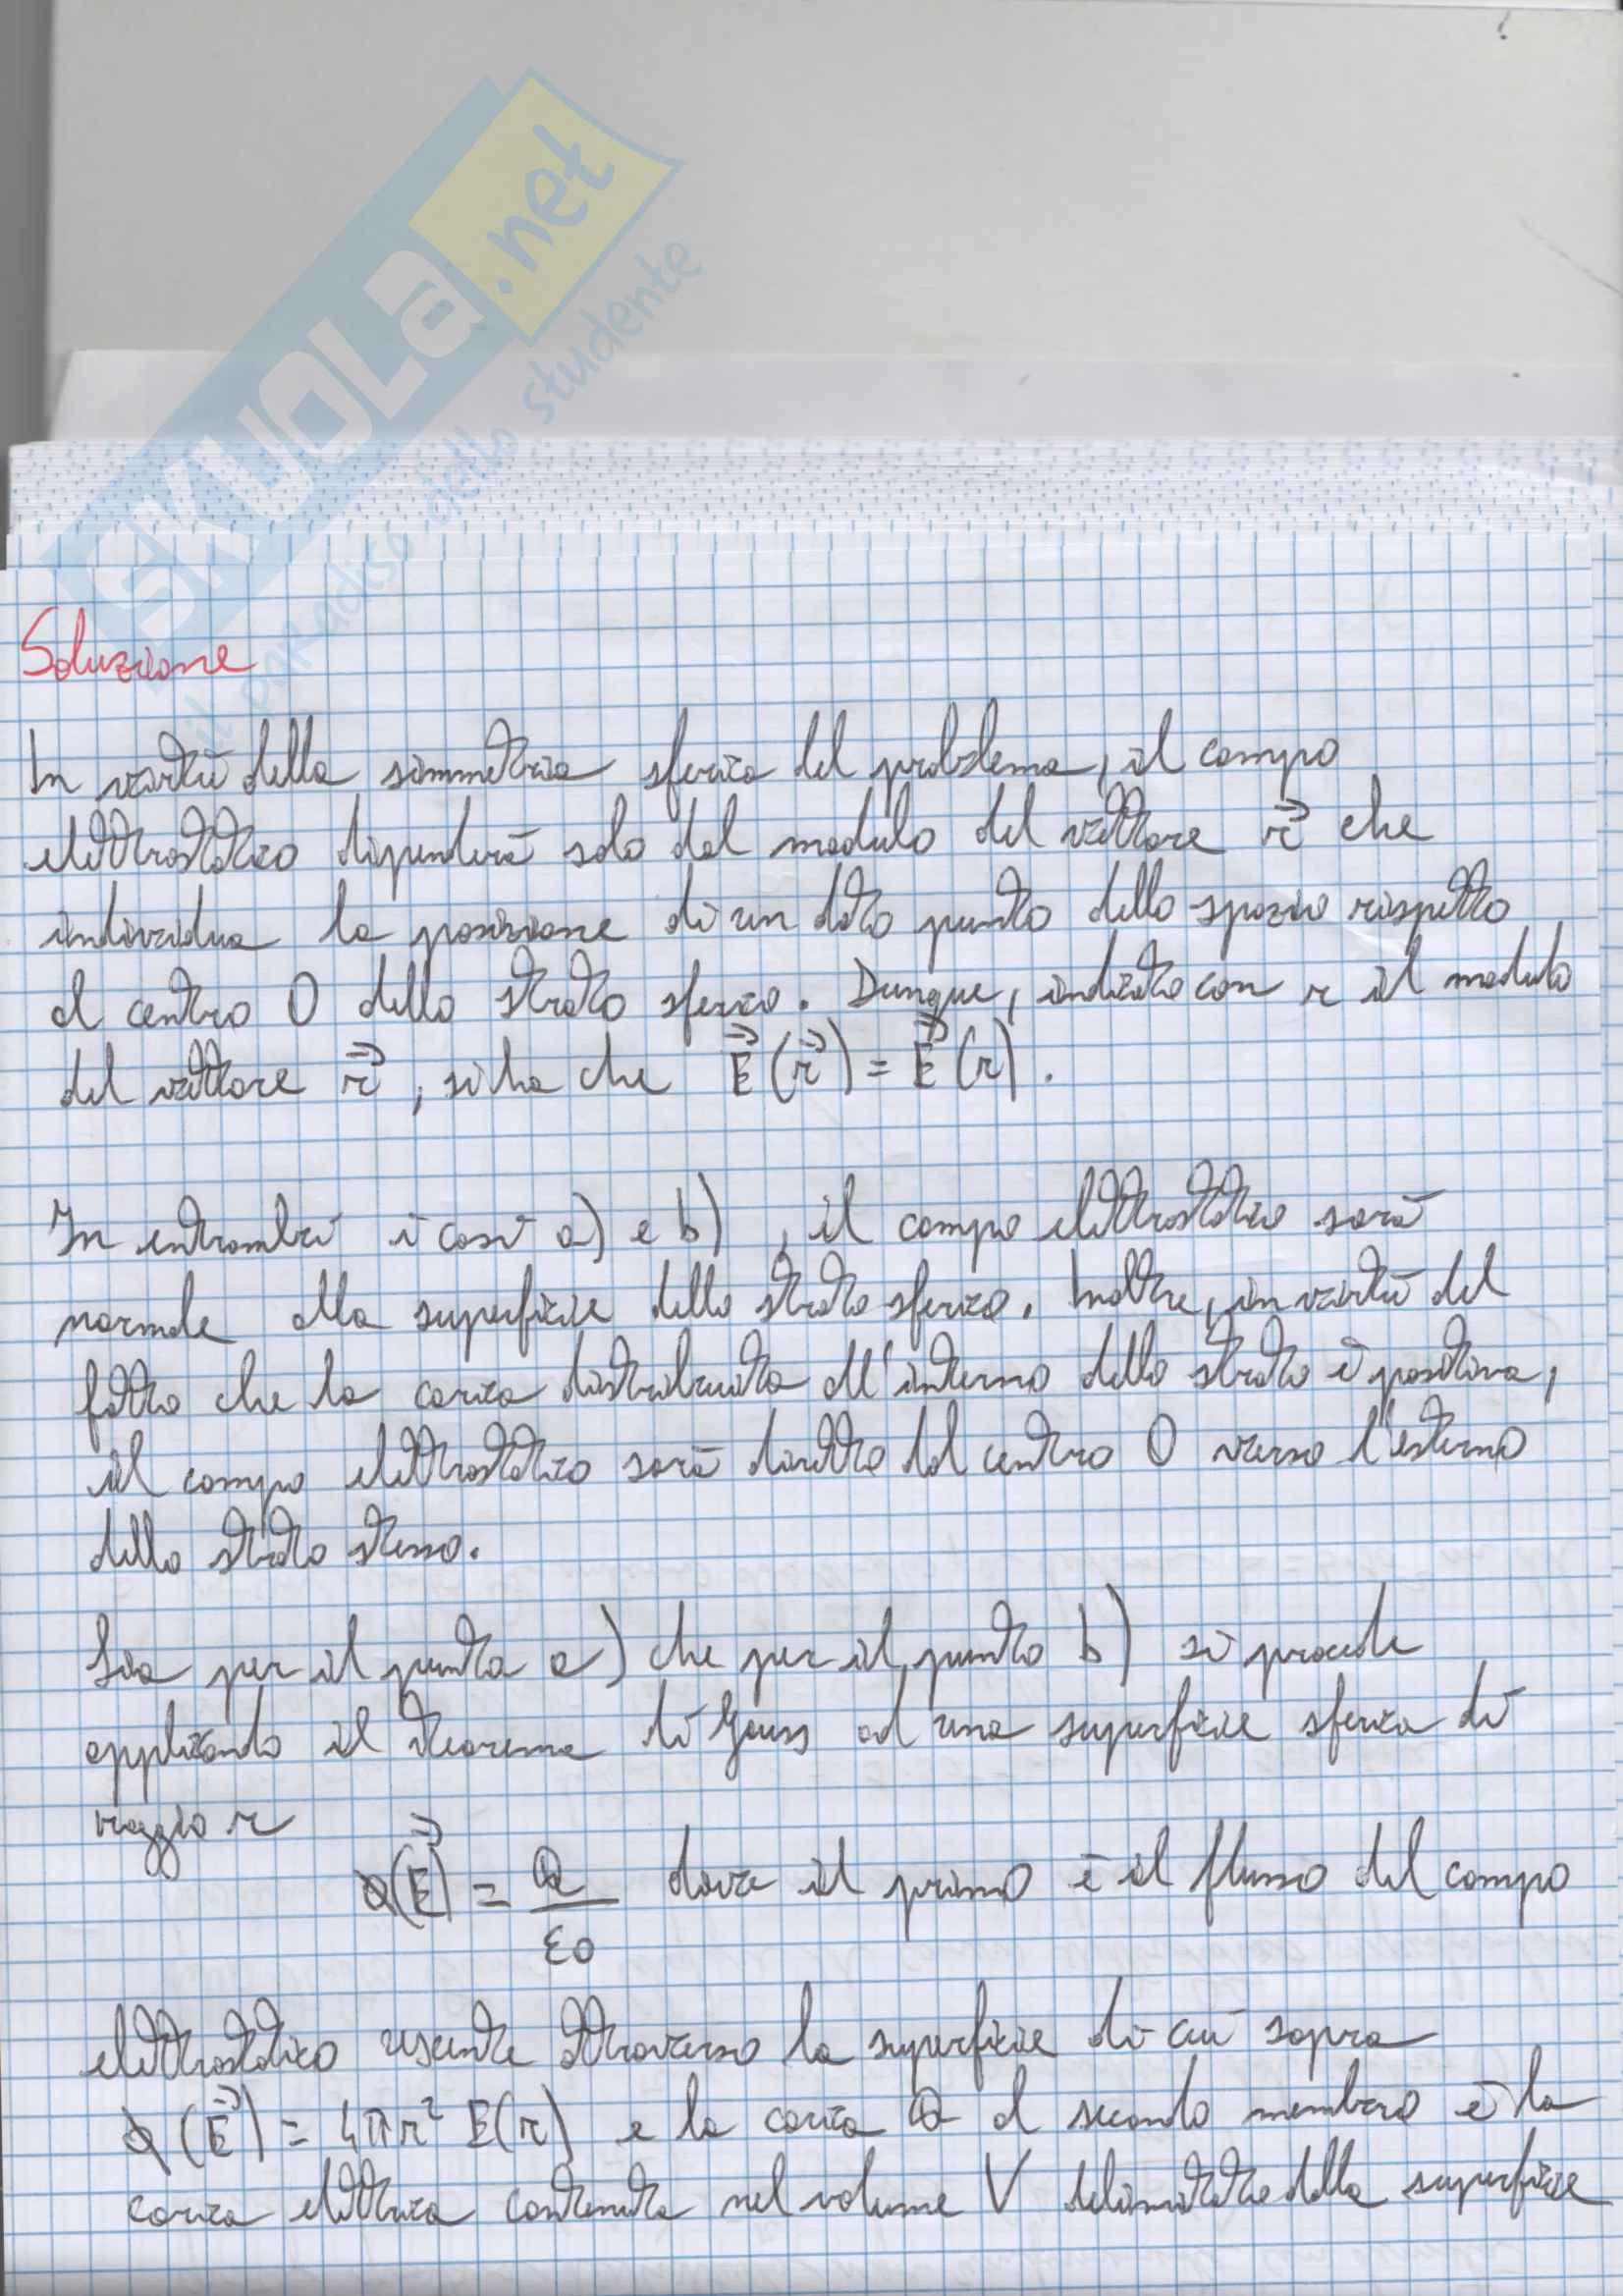 SKUOLA.net
il paradiso dello studente
Soluzione
In virtù della simmetria sferica del problema, il campo
elettrostatico dipenderà solo dal modulo del vettore r⃗ che
individua la posizione di un dato punto dello spazio rispetto
al centro O dello strato sferico. Dunque, indicato con r il modulo
del vettore r⃗, si ha che E⃗(r⃗) = E⃗(r).
In entrambi i casi a) e b), il campo elettrostatico sarà
normale alla superficie dello strato sferico. Inoltre, in virtù del
fatto che la carica distribuita all'interno dello strato è positiva,
il campo elettrostatico sarà diretto dal centro O verso l'esterno
dello strato stesso.
Sia per il punto a) che per il punto b) si procede
applicando il teorema di Gauss ad una superficie sferica di
raggio r
ϕ(E⃗) = Q/ε0 dove il primo è il flusso del campo
elettrostatico uscente attraverso la superficie di cui sopra
ϕ(E⃗) = 4πr² E(r) e la carica Q al secondo membro è la
carica elettrica contenuta nel volume V delimitato dalla superficie